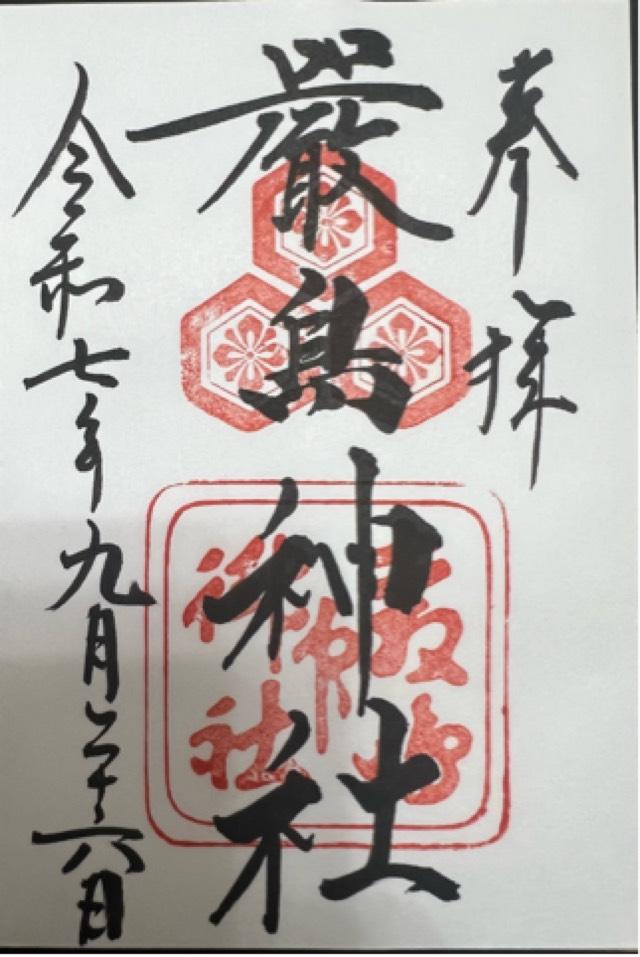 奉拝
嚴島神社
令和七年九月二十六日